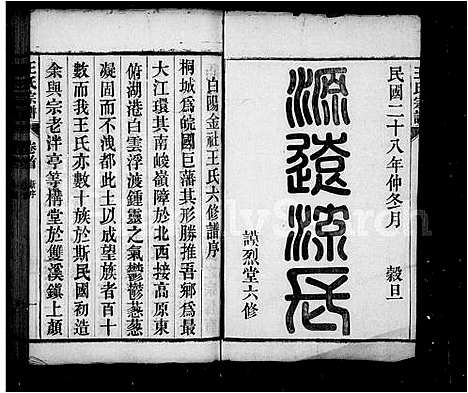 王氏宗譜
民國二十八年仲冬月 穀旦
源遠流長
謨烈堂六修
白陽金社王氏六修譜序
桐城為皖國巨藩其形勝推吾鄉為最
大江環其南峻嶺障於北西接高原東
俯湖港白雲浮渡鍾靈之氣鬱鬱蔥蔥
凝固而不洩都此土以成望族者百十
數而我王氏亦數十族於斯民國初造
余與宗老泮亭等構堂於雙溪鎮上顏
王氏宗譜
卷首
新序
FamilySearch